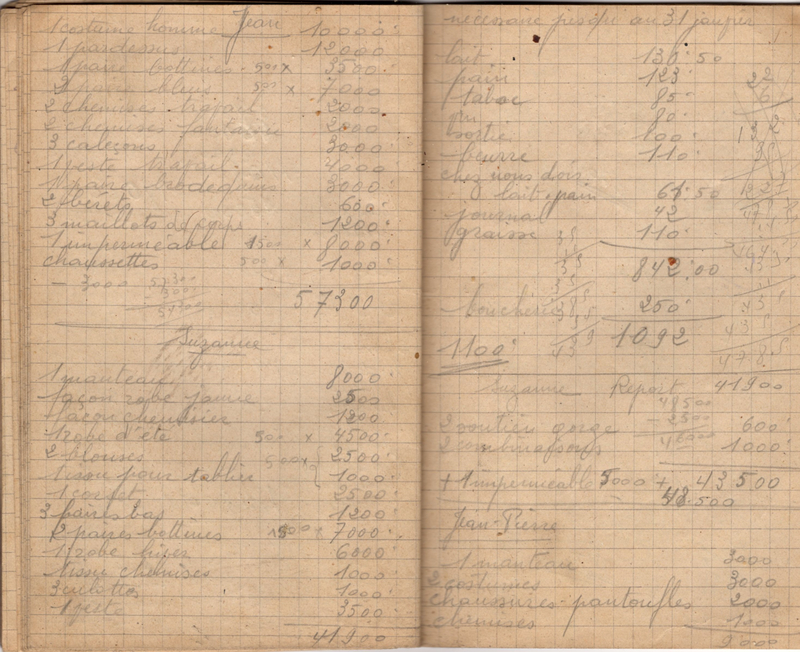 Jean
1 costume homme 10000
1 pardessus 12000
1 paire bottines 500 x 3500
2 bleus 500 x 7000
2 chemises travail 2000
2 chemises fantaisie 2000
3 caleçons 3000
1 veste travail 4000
1 paire brodequins 3000
2 bérets 600
3 maillots de corps 1200
1 imperméable 1500 x 8000
chaussettes 500 x 1000
- 3000
57300
Suzanne
1 manteau 8000
façon robe jaune 2500
façon chemisier 1200
1 robe d'été 500 x 4500
2 blouses 2500
1 tissu pour tablier 1000
1 corset 2500
3 paires bas 1200
2 paires bottines 1500 x 7000
1 robe hiver 6000
1 tissu chemises 1000
3 culottes 1000
1 3500
41900
nécessaire jusqu'au 31 janvier
lait 136.50
pain 123
tabac 85
vin 80
sortie 100
beurre 110
chez nous dois
lait, pain
journal 42
graisse 110
842.00
boucherie 250
1100 1092
Suzanne Report 41900
2 soutien gorge 600
2 combinaisons 1000
+ 1 imperméable 5000 + 43500
48.500
Jean-Pierre
1 manteau 3000
2 costumes 3000
chaussures-pantoufles 2000
chemises 1000
9000